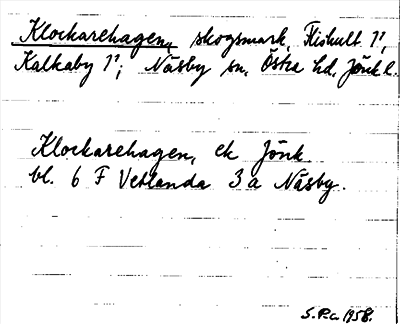 Klockarehagen, skogsmark, Fliskult 1¹,
Kalkaby 1¹; Näsby sn, Östra hd, Jönk l.
Klockarehagen, ek Jönk
bl. 6 F Vetlanda 3 a Näsby.
S.P-a 1958.